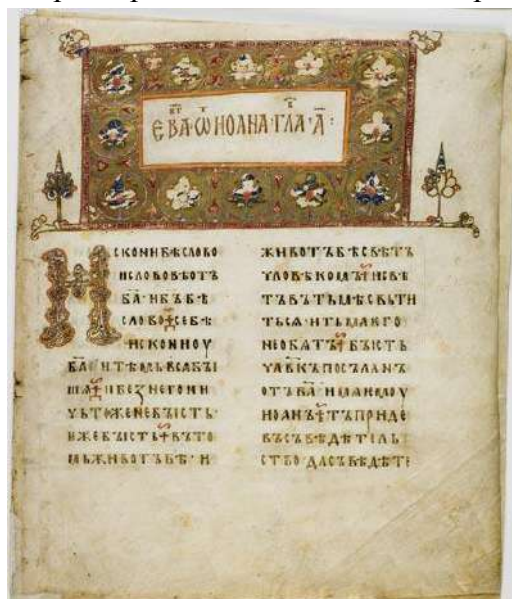 ЕВАⷢ҇·Ѿ ИОАНА·ГЛАⷡ·А҃:
ИСКОНИБѢСЛОВО
ИСЛОВОБѢОТЪ
БА҃·ИБЪ҃БѢ
СЛОВО·СЕБѢ
ИСКОНИОУ
БА҃·ИТѢМЬВСАБЫ
ШѦ·ИБЕЗНЕГОНИ
ЧЬТОЖЕНЕБЫСТЬ·
ИЖЕБЫСТЬ·ВЪТО
МЬЖИВОТЪБѢ·И
ЖИВОТЪБѢСВѢТЪ
ЧЛОВѢКОМЪ·ИСВѢ
ТЪВЪТЬМѢСВЬТИ
ТЬСѦ·ИТЬМАѤГО
НЕОБѦТЪ·БЫСТЬ
ЧЛ҃ВКЪПОСЪЛАНЪ
ОТЪБА҃·ИМѦѤМОУ
ИОАНЪ·ТЪПРИДЕ
ВЪСЪВѢДѢТЕЛЬ
СТВО·ДАСЪВѢДѢТЕ